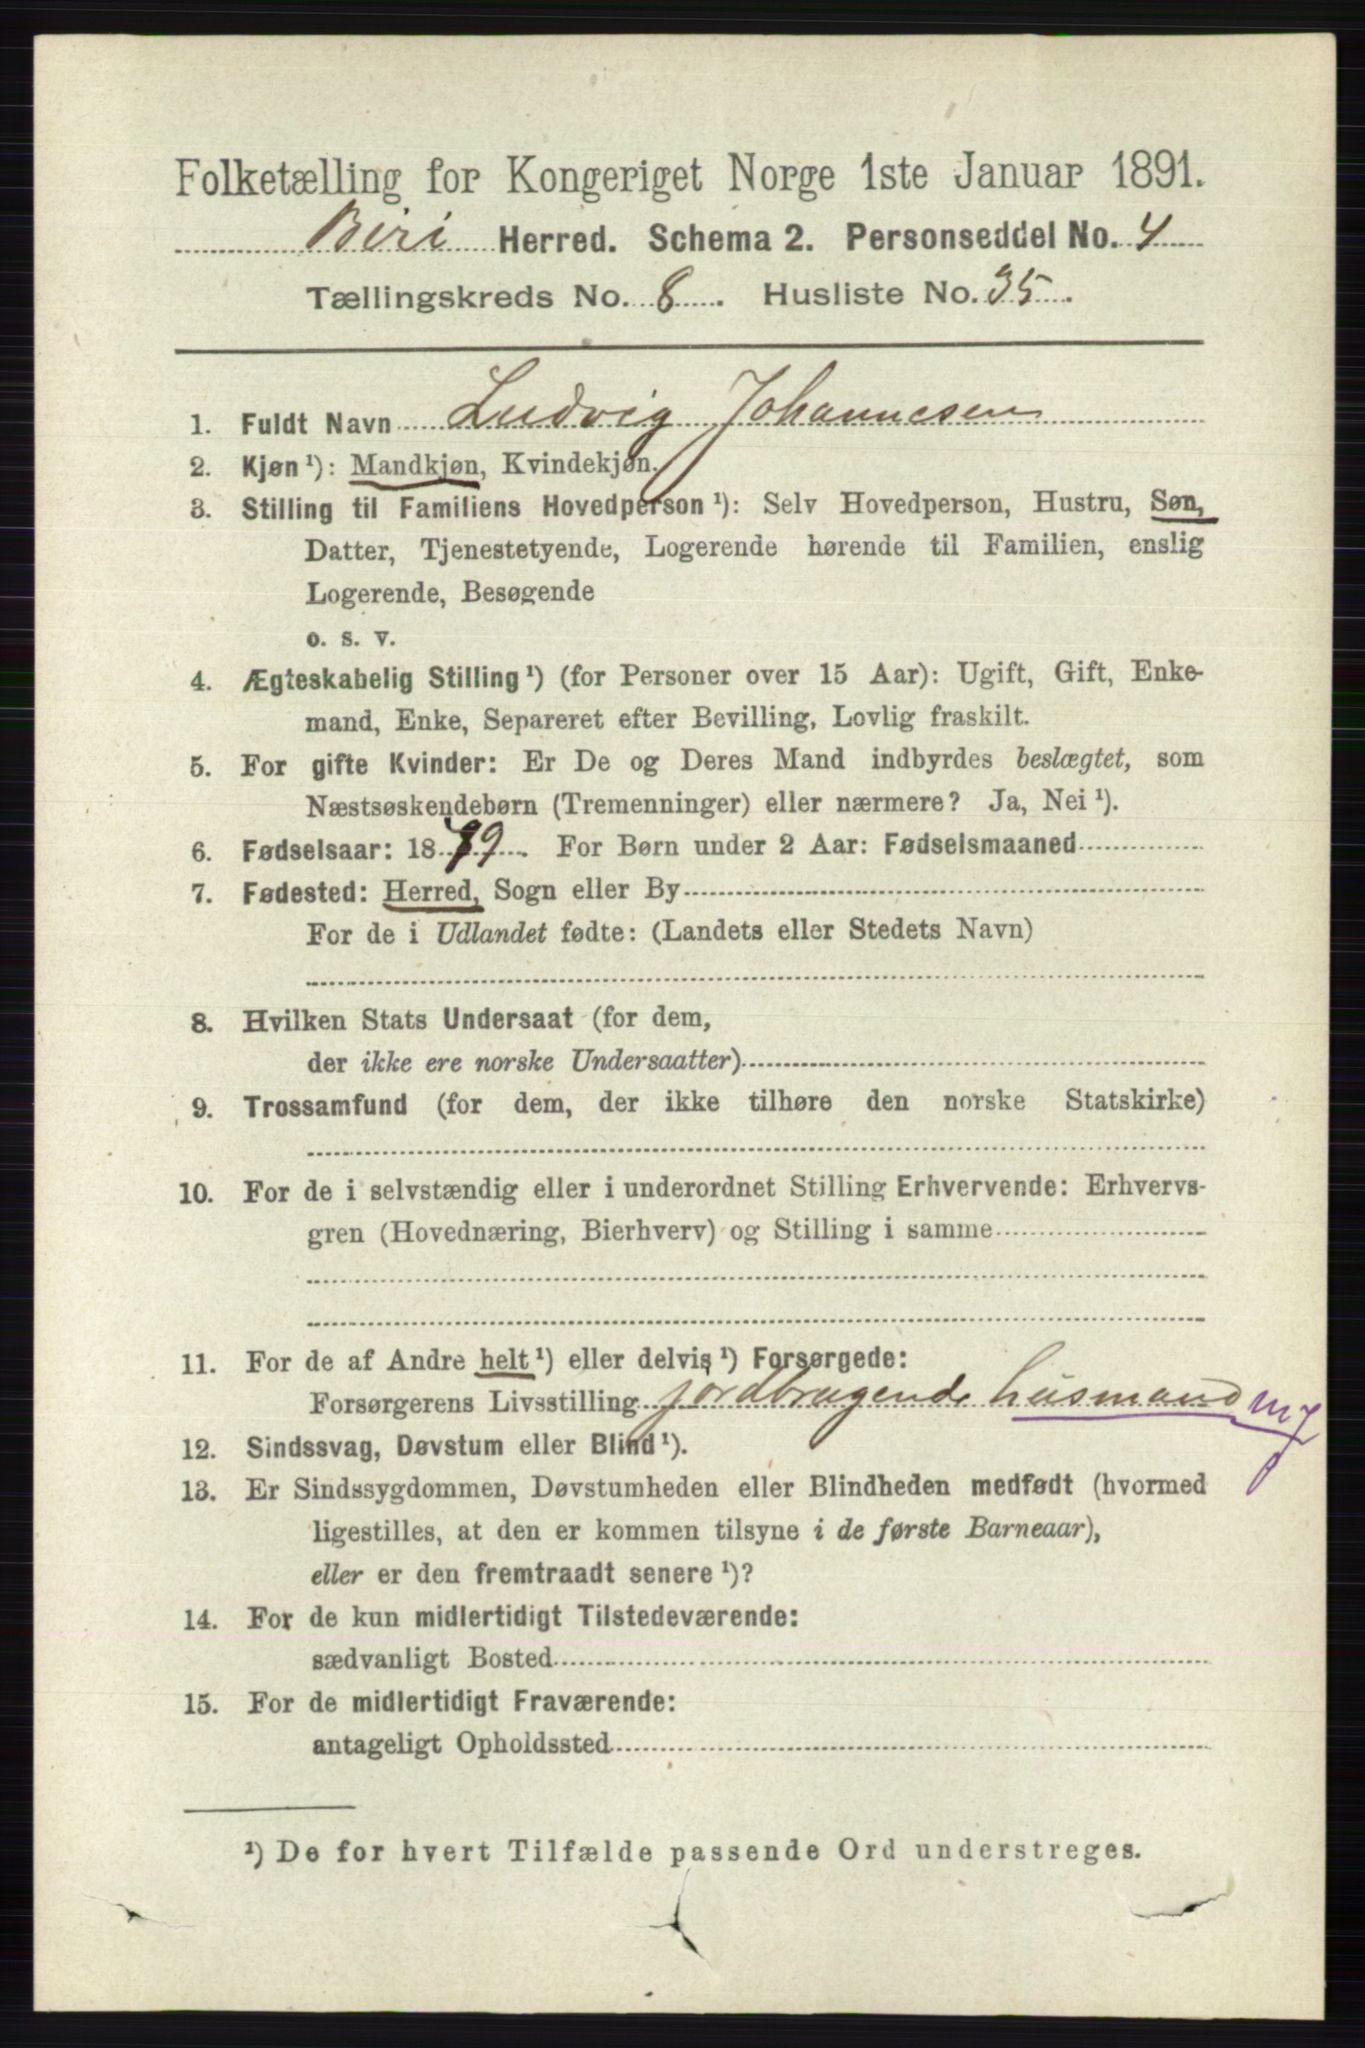 Folketælling for Kongeriget Norge 1ste Januar 1891.
Biri Herred. Schema 2. Personseddel No. 4
Tællingskreds No. 8. Husliste No. 35.
1. Fuldt Navn Ludvig Johannesen
2. Kjøn ¹): Mandkjøn, Kvindekjøn.
3. Stilling til Familiens Hovedperson ¹): Selv Hovedperson, Hustru, Søn,
Datter, Tjenestetyende, Logerende hørende til Familien, enslig
Logerende, Besøgende
o. s. v.
4. Ægteskabelig Stilling ¹) (for Personer over 15 Aar): Ugift, Gift, Enke-
mand, Enke, Separeret efter Bevilling, Lovlig fraskilt.
5. For gifte Kvinder: Er De og Deres Mand indbyrdes beslægtet, som
Næstsøskendebørn (Tremenninger) eller nærmere? Ja, Nei ¹).
6. Fødselsaar: 1879. For Børn under 2 Aar: Fødselsmaaned
7. Fødested: Herred, Sogn eller By
For de i Udlandet fødte: (Landets eller Stedets Navn)
8. Hvilken Stats Undersaat (for dem,
der ikke ere norske Undersaatter)
9. Trossamfund (for dem, der ikke tilhøre den norske Statskirke)
10. For de i selvstændig eller i underordnet Stilling Erhvervende: Erhvervs-
gren (Hovednæring, Bierhverv) og Stilling i samme
11. For de af Andre helt ¹) eller delvis ¹) Forsørgede:
Forsørgerens Livsstilling jordbrugende husmand mj
12. Sindssvag, Døvstum eller Blind ¹).
13. Er Sindssygdommen, Døvstumheden eller Blindheden medfødt (hvormed
ligestilles, at den er kommen tilsyne i de første Barneaar),
eller er den fremtraadt senere ¹)?
14. For de kun midlertidigt Tilstedeværende:
sædvanligt Bosted
15. For de midlertidigt Fraværende:
antageligt Opholdssted
¹) De for hvert Tilfælde passende Ord understreges.